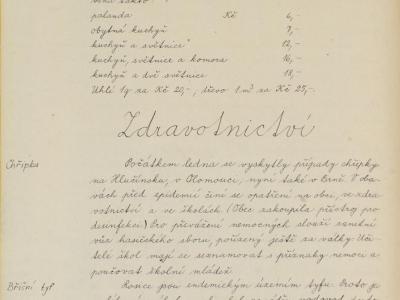 palanda Kč 6,-
obytná kuchyň 7,-
kuchyň a světnice 12,-
kuchyň, světnice a komora 16,-
kuchyň a dvě světnice 18,-
Uhlí 1q za Kč 20,-, dřevo 1 m³ za Kč 25,-.
Zdravotnictví
Chřipka
Počátkem ledna se vyskytly případy chřipky
na Hlučínsku, v Olomouci, nyní také v Brně. V oba-
vách před epidemií činí se opatření na obci, ve zdra-
votnictví a ve školách (Obec zakoupila přístroj pro
desinfekci) Pro převážení nemocných slouží sanitní
vůz hasičského sboru, pořízený ještě za války. Uči-
telé škol mají se seznamovat s příznaky nemoci a
poučovat školní mládež.
Břišní tyf
Rosice jsou endemickým územím tyfu. Proto je